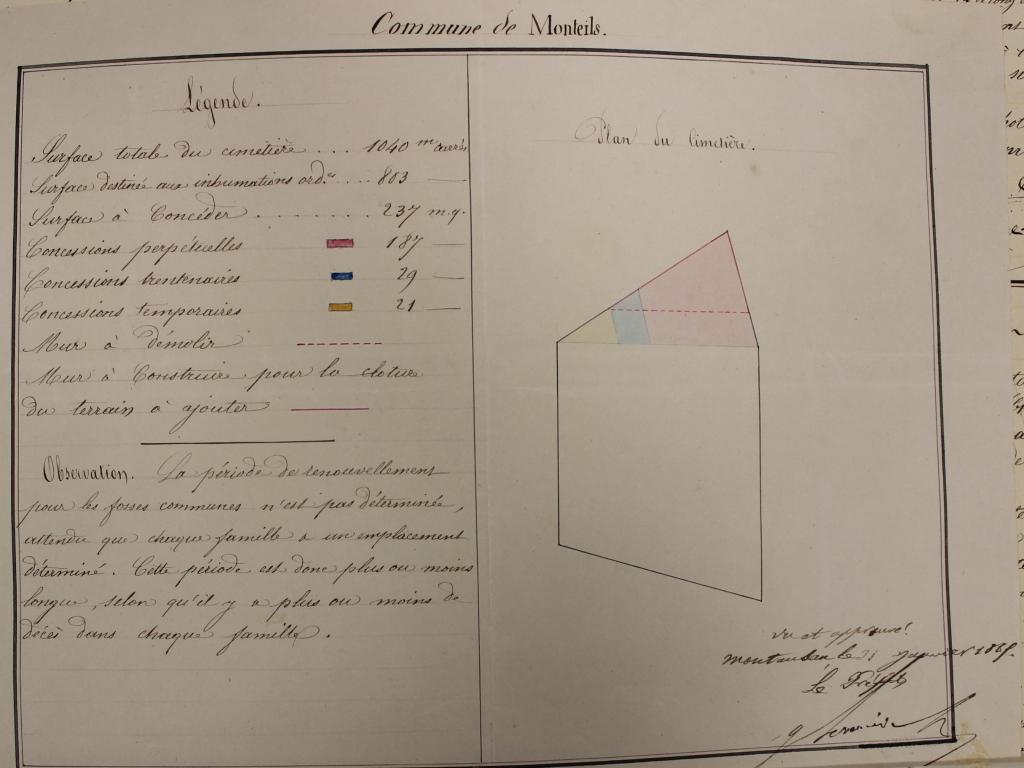 Commune de Monteils.
Légende.
Surface totale du cimetière . . . 1040 m carrés
Surface destinée aux inhumations ord.res . . . 803 —
Surface à Concéder . . . . . . . . 237 m.q.
Concessions perpétuelles 187 —
Concessions trentenaires 29 —
Concessions temporaires 21 —
Mur à démolir
Mur à Construire pour la cloture
du terrain à ajouter
Observation. La période de renouvellement
pour les fosses communes n'est pas déterminée,
attendu que chaque famille a un emplacement
déterminé. Cette période est donc plus ou moins
longue, selon qu'il y a plus ou moins de
décès dans chaque famille.
Plan du Cimetière.
Vu et approuvé!
Montauban le 21 janvier
Le Préfet